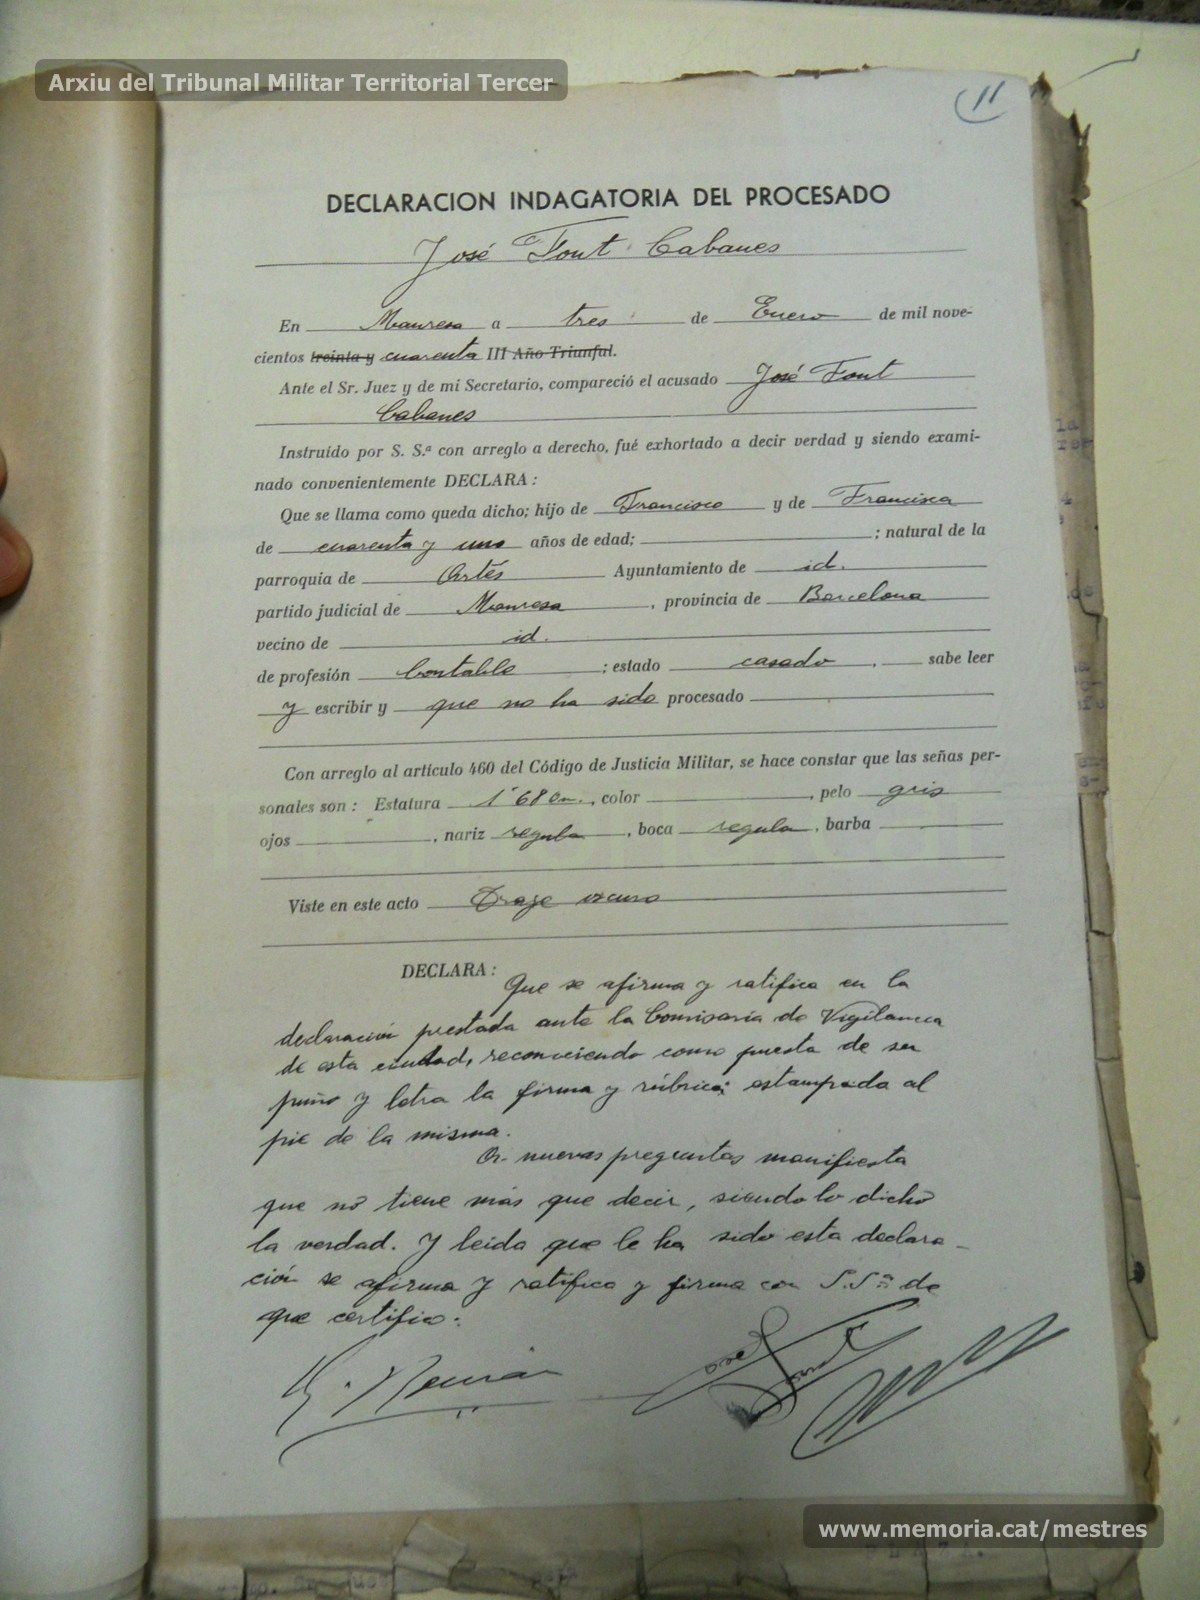 Arxiu del Tribunal Militar Territorial Tercer
11
DECLARACION INDAGATORIA DEL PROCESADO
José Font Cabanes
En Manresa a tres de Enero de mil nove-
cientos treinta y cuarenta III Año Triunfal.
Ante el Sr. Juez y de mi Secretario, compareció el acusado José Font
Cabanes
Instruído por S. S.ª con arreglo a derecho, fué exhortado a decir verdad y siendo exami-
nado convenientemente DECLARA:
Que se llama como queda dicho; hijo de Francisco y de Francisca
de cuarenta y uno años de edad; ; natural de la
parroquia de Artés Ayuntamiento de id.
partido judicial de Manresa, provincia de Barcelona
vecino de id.
de profesión Contable; estado casado. sabe leer
y escribir y que no ha sido procesado
Con arreglo al artículo 460 del Código de Justicia Militar, se hace constar que las señas per-
sonales son: Estatura 1'68 cm., color , pelo gris
ojos , nariz regular, boca regular, barba
Viste en este acto Traje oscuro
DECLARA: Que se afirma y ratifica en la
declaración prestada ante la Comisaria de Vigilancia
de esta ciudad, reconociendo como puesta de su
puño y letra la firma y rúbrica estampada al
pie de la misma.
A nuevas preguntas manifiesta
que no tiene más que decir, siendo lo dicho
la verdad. Y leida que le ha sido esta declara-
ción se afirma y ratifica y firma con S.Sª de
que certifico.
José Font
www.memoria.cat/mestres